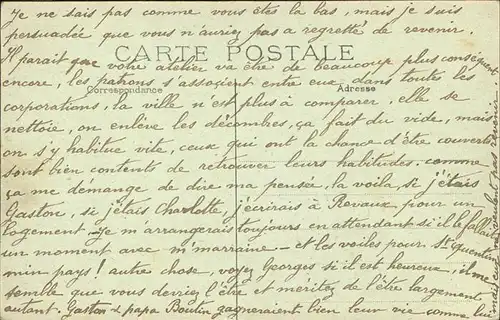 Je ne sais pas comme vous êtes la bas, mais je suis
persuadée que vous n'auriez pas a regretté de revenir.
CARTE POSTALE
Il parait que votre atelier va être de beaucoup plus conséquent
encore, les patrons s'associent entre eux dans toute les
Correspondance
Adresse
corporations, la ville n'est plus à comparer, elle se
nettoie, on enlève les décombres, ça fait du vide, mais
on s'y habitue vite, ceux qui ont la chance d'être couverts
sont bien contents de retrouver leurs habitudes. comme
ça me demange de dire ma pensée, la voila, si j'étais
Gaston, si j'étais Charlotte j'écrirais à Revaux pour un
logement - je m'arrangerais toujours en attendant si il le fallait
un moment avec m'marraine - et les voiles pour St Quentin
min pays! autre chose, voyez Georges si il est heureux, il me
semble que vous devriez l'être et méritez de l'être largement
autant. Gaston & papa Boutin gagneraient bien leur vie comme lui